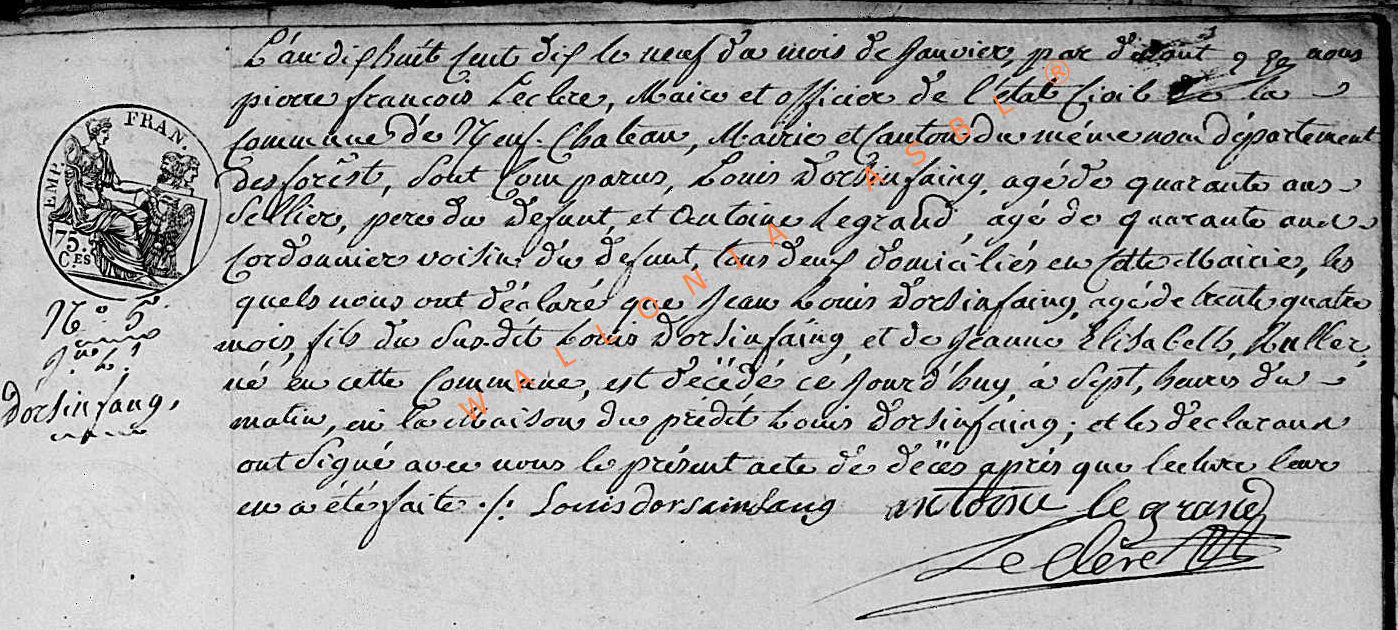 L'an dix huit cent dix le neuf du mois de Janvier, par d'evant nous
pierre françois Leclere, Maire et officier de l'état Civil de la
Commune de Neuf-Chateau, Mairie et Canton du même nom département
des forêst, Sont Comparus, Louis Dorsinfaing, agé de quarante ans
Sellier, pere du défunt, et Antoine Legrand, agé de quarante ans
Cordonnier voisin du defunt, tous deux domiciliés en Cette Mairie, les
quels nous ont déclaré que Jean Louis Dorsinfaing, agé de trente quatre
mois, fils du Sus-dit Louis Dorsinfaing, et de Jeanne Elisabeth, Muller,
né en cette Commune, est décédé ce Jourd'huy, à Sept, heures du
matin, en la Maison du prédit Louis Dorsinfaing; et les déclarans
ont Signé avec nous le présent acte de décès après que lecture leur
en a été faite ./. Louis dorsainfang antoine le grand
Le Clere
FRAN.
EMP.
75.
C.ES
N.° 5.
Dorsinfang,
WALLONIA ASBL ®